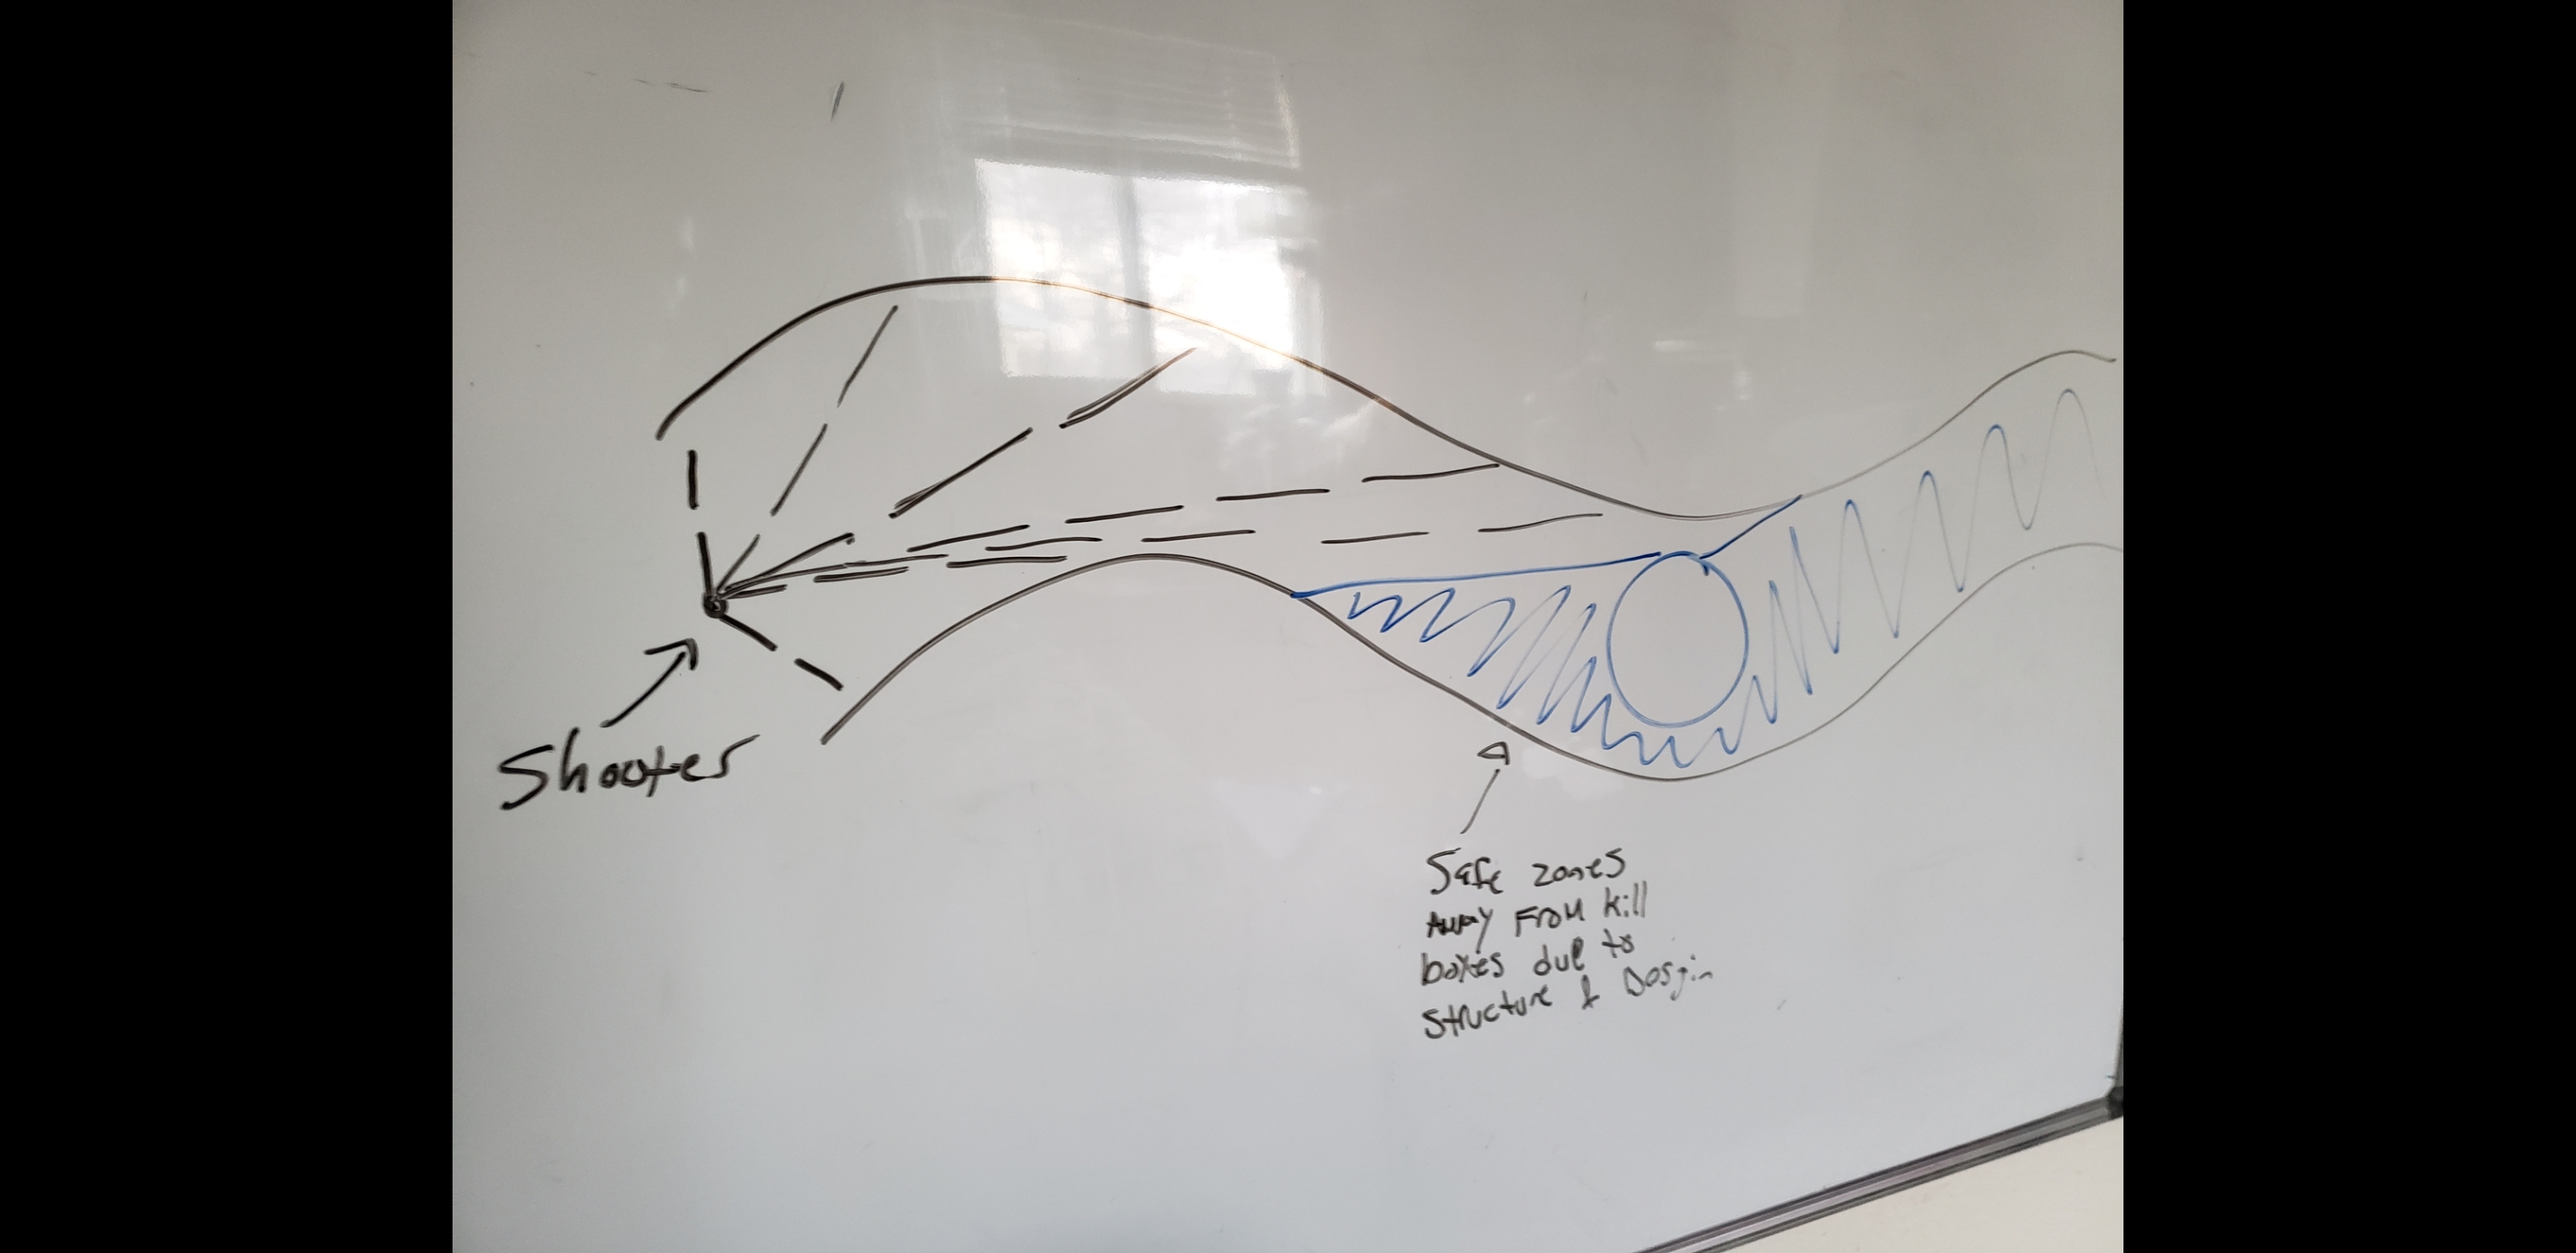 Shooter
Safe zones
Away From kill
boxes due to
Structure & Dosgin